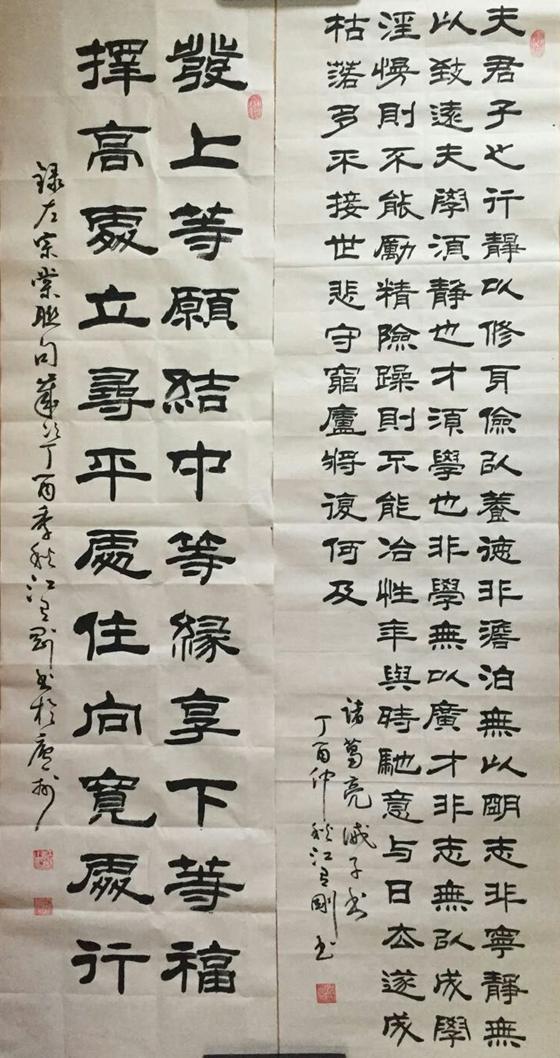 夫君子之行靜以修身儉以養德非澹泊無以明志非寧靜無
以致遠夫學須靜也才須學也非學無以廣才非志無以成學
淫慢則不能勵精險躁則不能冶性年與時馳意与日去遂成
枯落多不接世悲守窮廬將復何及
諸葛亮诫子书
丁酉仲秋江有剛书
發上等願結中等緣享下等福
擇高處立尋平處住向寬處行
録左宗棠联句歲次丁酉季秋江有刚书於廣州